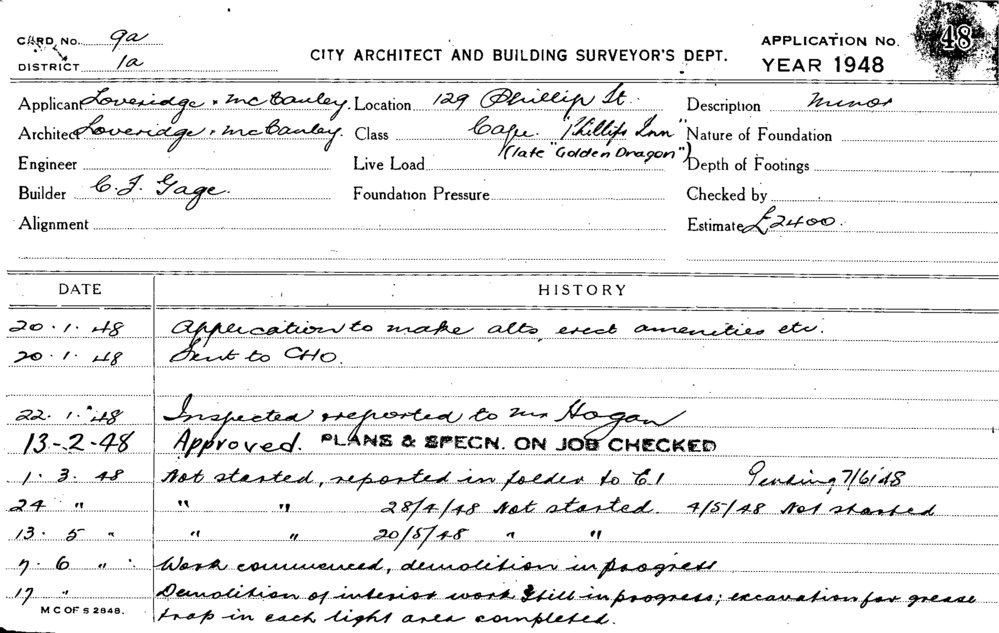 CARD No. 9a
DISTRICT 1a
CITY ARCHITECT AND BUILDING SURVEYOR'S DEPT.
APPLICATION No. 48
YEAR 1948
Applicant Loveridge & McCauley. Location 129 Phillip St. Description Minor
Architect Loveridge & McCauley. Class Cafe. "Phillips Inn" Nature of Foundation
Engineer Live Load (late "Golden Dragon") Depth of Footings
Builder C. F. Gage. Foundation Pressure Checked by
Alignment Estimate £2400.
DATE HISTORY
20.1.48 Application to make alts, erect amenities etc.
20.1.48 Sent to CHO.
22.1.48 Inspected & reported to Mr Hogan
13-2-48 Approved. PLANS & SPECN. ON JOB CHECKED
1.3.48 Not started, reported in folder to E.1 Pending 7/6/48
24 " " " 28/4/48 Not started. 4/5/48 Not started
13.5 " " " 20/5/48 " "
7.6 " Work commenced, demolition in progress
17 " Demolition of interior work still in progress; excavation for grease
M C OF S 2848. trap in each light area completed.